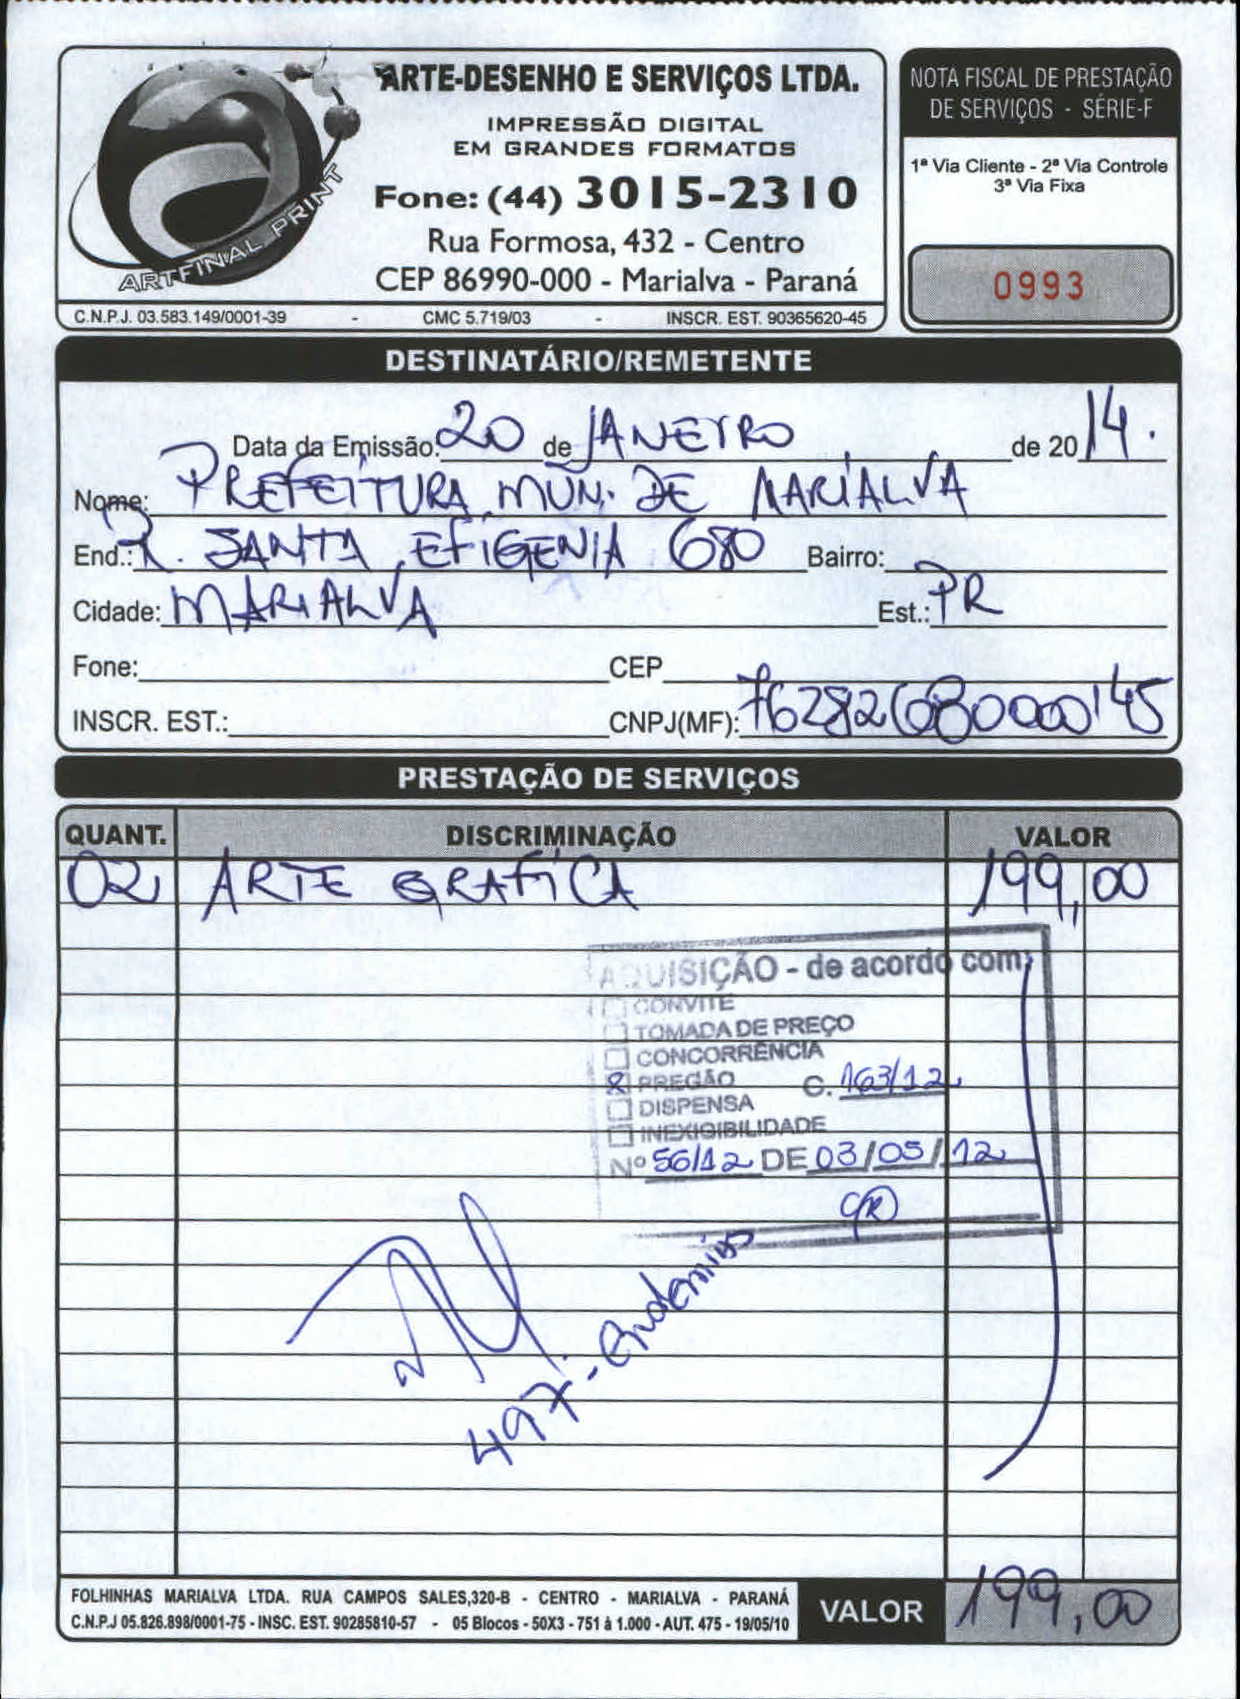 ARTE-DESENHO E SERVIÇOS LTDA.
IMPRESSÃO DIGITAL
EM GRANDES FORMATOS
Fone: (44) 3015-2310
Rua Formosa, 432 - Centro
CEP 86990-000 - Marialva - Paraná
ARTFINAL PRINT
C.N.P.J. 03.583.149/0001-39 - CMC 5.719/03 - INSCR. EST. 90365620-45
NOTA FISCAL DE PRESTAÇÃO
DE SERVIÇOS - SÉRIE-F
1ª Via Cliente - 2ª Via Controle
3ª Via Fixa
0993
DESTINATÁRIO/REMETENTE
Data da Emissão: 20 de JANEIRO de 2014.
Nome: PREFEITURA MUN. DE MARIALVA
End.: R. SANTA EFIGENIA 680 Bairro:
Cidade: MARIALVA Est.: PR
Fone: CEP
INSCR. EST.: CNPJ(MF): 76282680000145
PRESTAÇÃO DE SERVIÇOS
QUANT. DISCRIMINAÇÃO VALOR
02 ARTE GRAFICA 199,00
AQUISIÇÃO - de acordo com:
CONVITE
TOMADA DE PREÇO
CONCORRÊNCIA
PREGÃO C. 163/12
DISPENSA
INEXIGIBILIDADE
Nº 56/12 DE 03/05/12
497-Endemias
FOLHINHAS MARIALVA LTDA. RUA CAMPOS SALES,320-B - CENTRO - MARIALVA - PARANÁ
C.N.P.J 05.826.898/0001-75 - INSC. EST. 90285810-57 - 05 Blocos - 50X3 - 751 à 1.000 - AUT. 475 - 19/05/10
VALOR 199,00